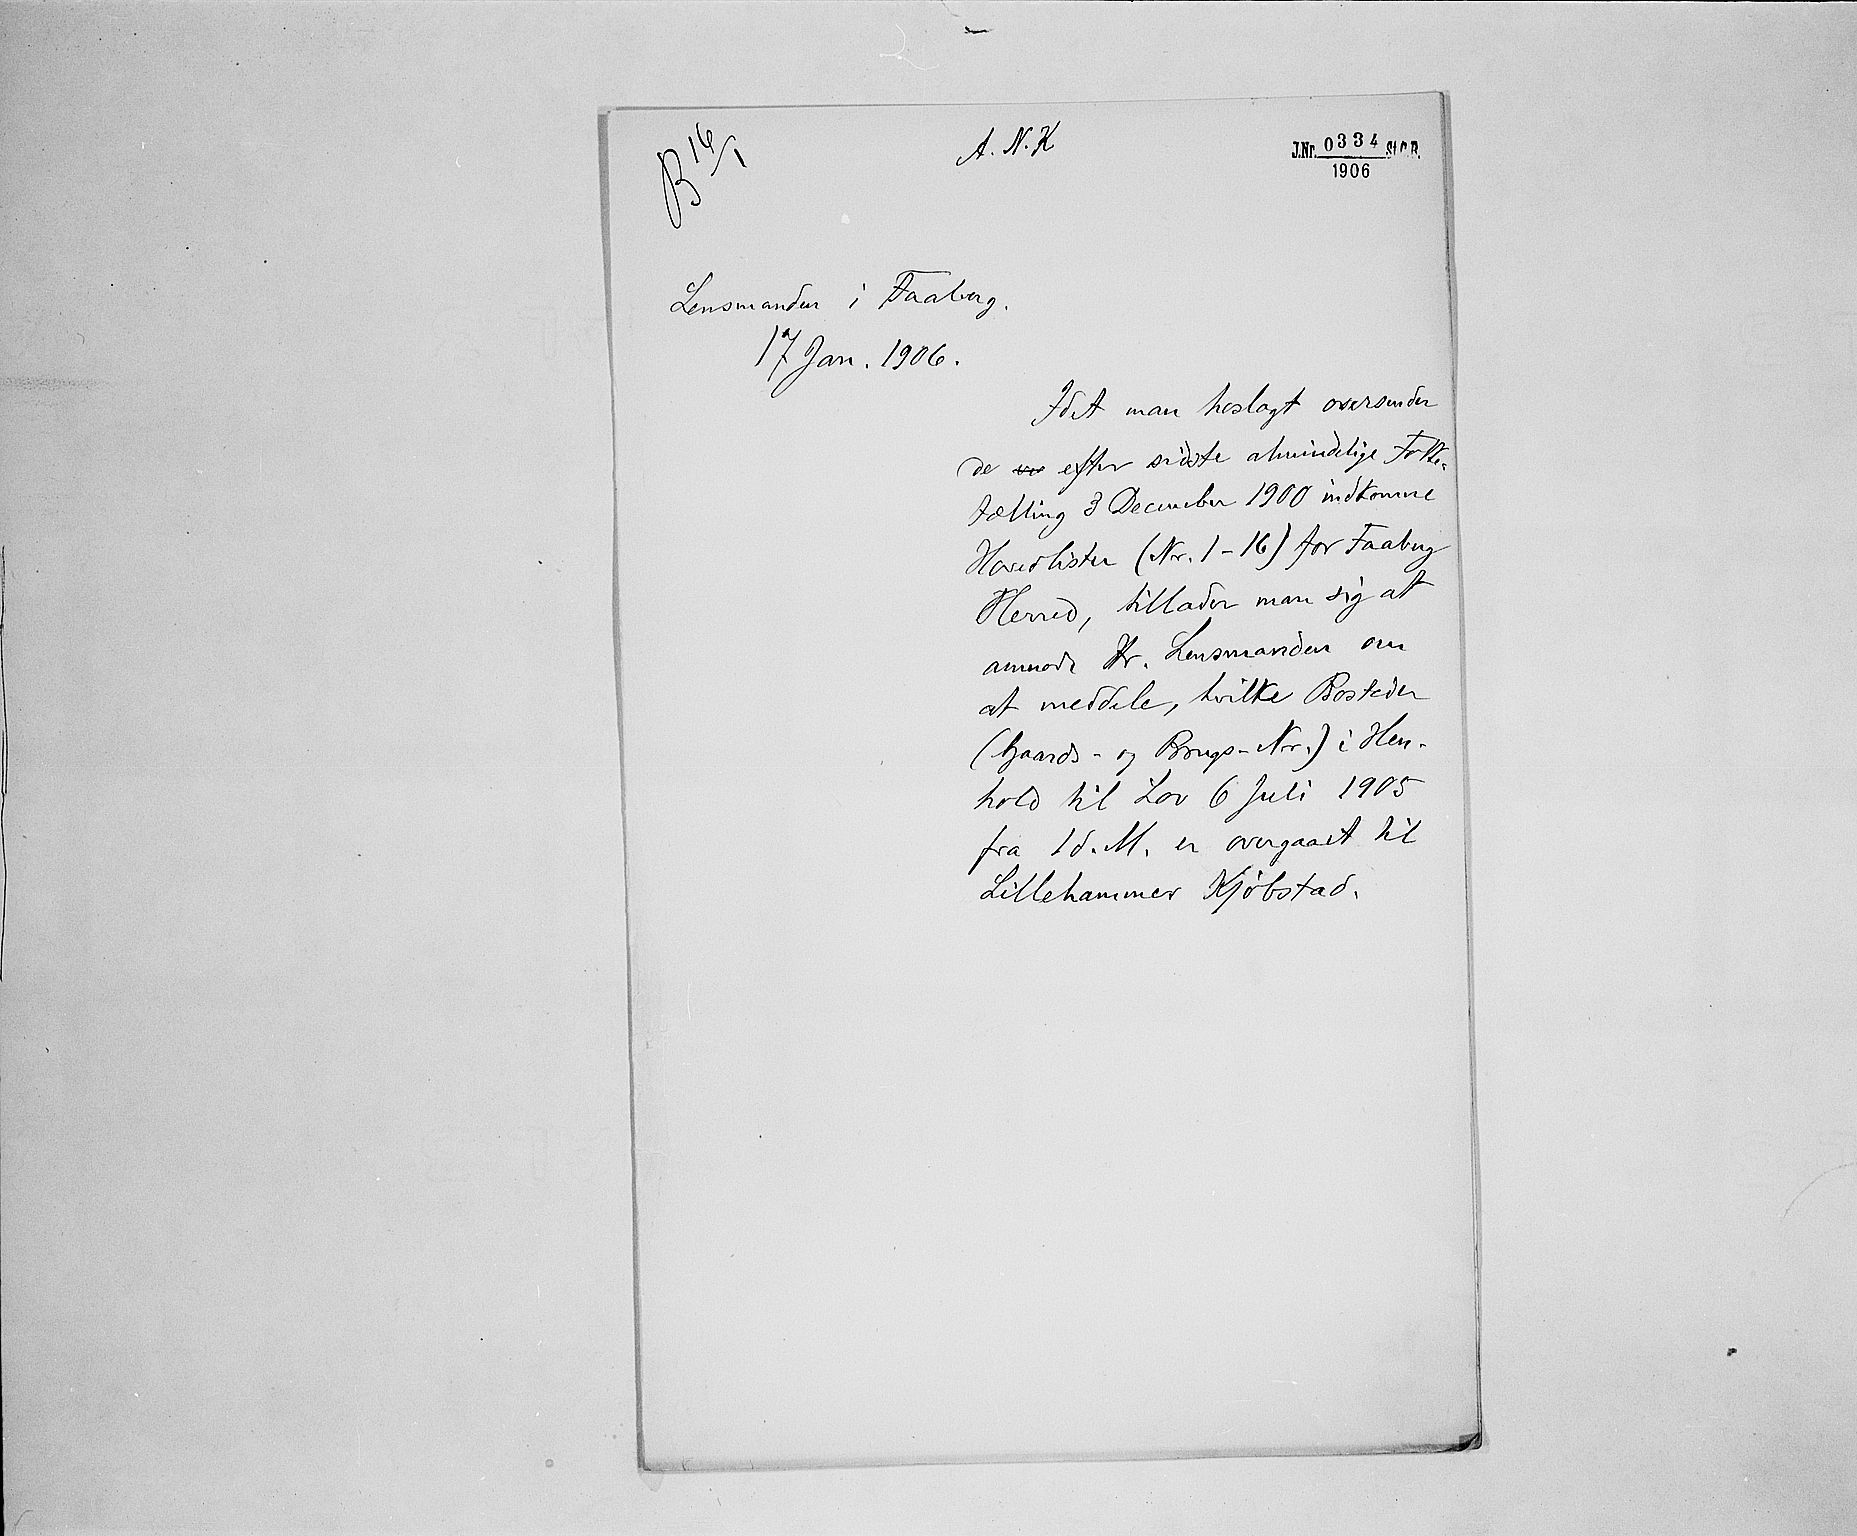 B 16/1
A. N. K
J.Nr. 0334 St.C.B.
1906
Lensmanden i Faaberg.
17 Jan. 1906.
Idet man hoslagt oversender
de efter sidste almindelige Folke-
tælling 3 December 1900 indkomne
Hovedlister (Nr. 1-16) for Faaberg
Herred, tillader man sig at
anmode Hr. Lensmanden om
at meddele, hvilke Bosteder
(Gaards- og Brugs-Nr.) i Hen-
hold til Lov 6 Juli 1905
fra 1 d. M. er overgaaet til
Lillehammer Kjøbstad.